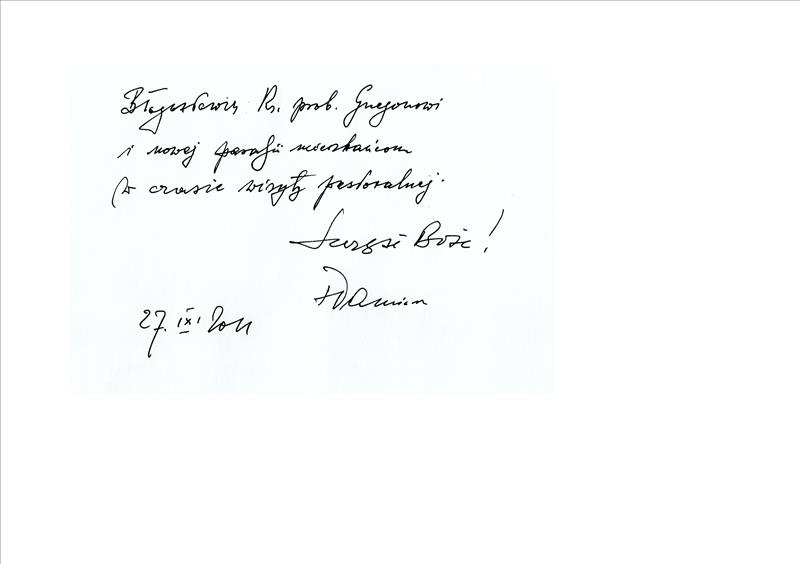 Błogosławię Ks. prob. Grzegorzowi
i nowej parafii mieszkańcom
w czasie wizyty pastoralnej.
Szczęść Boże!
+Damian
27. IX. 2011